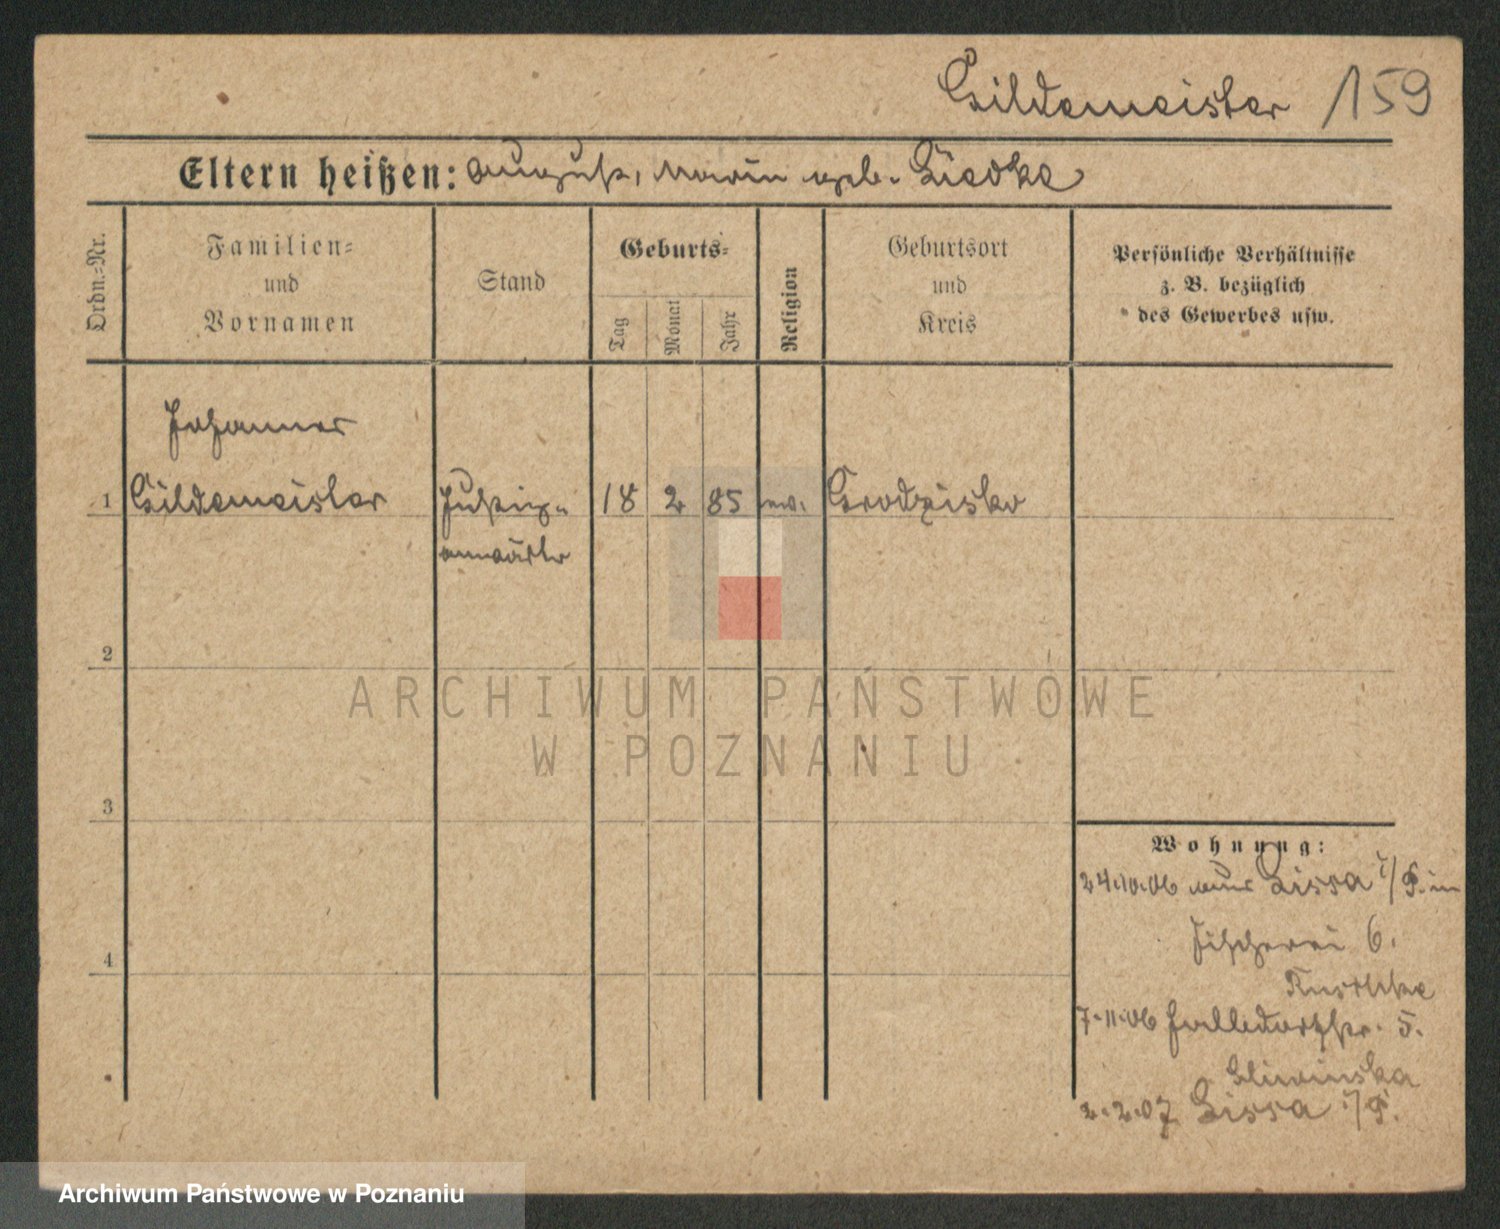 Gildemeister 159
Eltern heißen: August, Marie geb. Liedke
Ordn.=Nr.
Familien=
und
Vornamen
Stand
Geburts=
Tag
Monat
Jahr
Religion
Geburtsort
und
Kreis
Persönliche Verhältnisse
z. B. bezüglich
des Gewerbes usw.
Johannes
1 Gildemeister Justiz- 18 2 85 ev. Grodzisko
anwärter
2
3
4
ARCHIWUM PAŃSTWOWE
W POZNANIU
Wohnung:
24.10.06 aus Lissa i/P. in
Fischerei 6.
7.11.06 Halbdorfstr. 5.
Sliwinska
2.2.07 Lissa i/P.
Archiwum Państwowe w Poznaniu